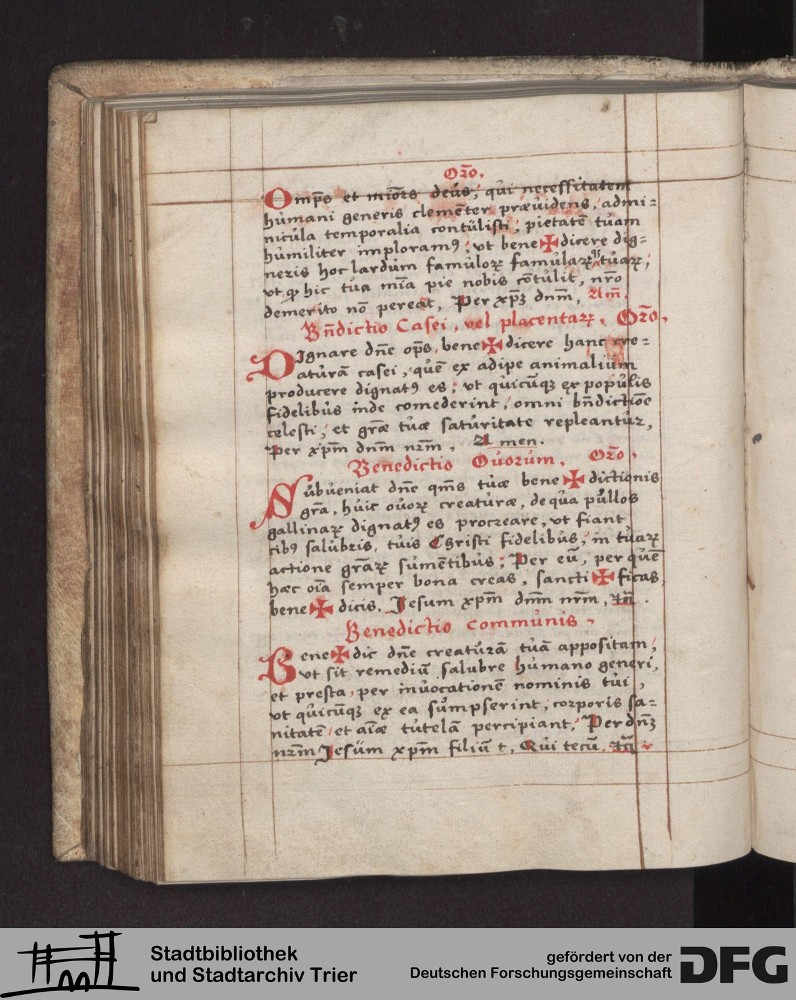 Orõ.
Omp̃s et miõrs deus, qui necessitatem
humani generis clemẽter præuidens, admi-
nicula temporalia contulisti, pietatẽ tuam
humiliter imploramꝰ, vt bene✠dicere dig-
neris hoc lardum famuloꝝ famularꝝ tuarꝝ,
vt qđ hic tua mĩa pie nobis cõtulit, nr̃o
demerito nõ pereat, Per xp̃ꝫ dnm, Am̃.
Bñdictio Casei, vel placentarꝝ. Orõ.
DIgnare dñe op̃s, bene✠dicere hanc cre-
aturã casei, quẽ ex adipe animalium
producere dignatꝰ es, vt quicũqꝫ ex populis
fidelibus inde comederint, omni bñdictiõe
celesti, et grãe tuæ saturitate repleantur,
Per xp̃m dnm nrm, Amen.
Benedictio Ouorum. Orõ.
SUbueniat dñe qm̃s tuæ bene✠dictionis
grã, huic ouoꝝ creaturæ, de qua pullos
gallinarꝝ dignatꝰ es procreare, vt fiant
cibꝰ salubris, tuis Christi fidelibus, in tuarꝝ
actione grãrꝝ sumẽtibus, Per eũ, per quẽ
hæc oĩa semper bona creas, sancti✠ficas,
bene✠dicis, Jesum xp̃m dnm nrm, tñ.
Benedictio communis.
Bene✠dic dñe creaturã tuã appositam,
vt sit remediũ salubre humano generi,
et presta, per inuocationẽ nominis tui,
vt quicũqꝫ ex ea sumpserint, corporis sa-
nitatẽ, et aĩæ tutelã percipiant, Per dñꝫ
nrm Jesum xp̃m filiũ t, Qui tecũ, tñ
Stadtbibliothek
und Stadtarchiv Trier
gefördert von der
Deutschen Forschungsgemeinschaft
DFG